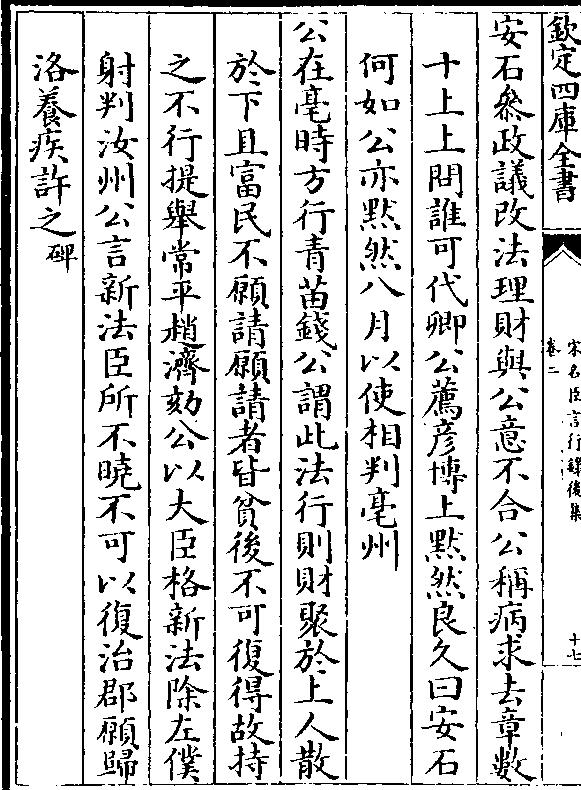 欽定四庫全書
宋名臣言行錄後集
卷二
十七
安石叅政議改法理財與公意不合公稱病求去章數
十上上問誰可代卿公薦彦博上黙然良久曰安石
何如公亦黙然八月以使相判亳州
公在亳時方行青苗錢公謂此法行則財聚於上人散
於下且富民不願請願請者皆貧後不可復得故持
之不行提舉常平趙濟劾公以大臣格新法除左僕
射判汝州公言新法臣所不曉不可以復治郡願歸
洛養疾許之碑